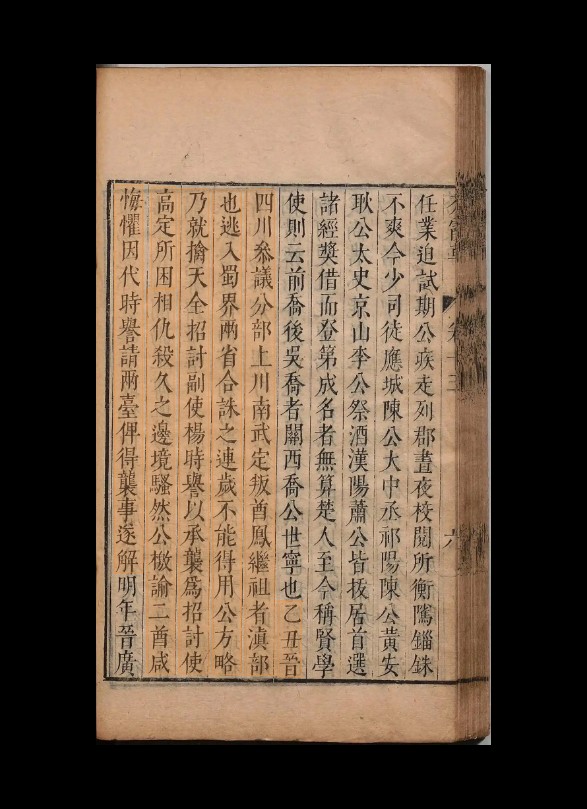 任業迫試期公疾走列郡晝夜校閱所衡隲錙銖
不爽今少司徒應城陳公大中丞祁陽陳公黄安
耿公太史京山李公祭酒漢陽蕭公皆拔居首選
諸經奬借而登第成名者無算楚人至今稱賢學
使則云前喬後吳喬者關西喬公世寧也乙丑晉
四川叅議分部上川南武定叛酋鳳繼祖者滇部
也逃入蜀界兩省合誅之連歲不能得用公方略
乃就擒天全招討副使楊時譽以承襲爲招討使
高定所困相仇殺久之邊境騷然公檄諭二酋咸
悔懼因代時譽請兩臺俾得襲事遂解明年晉廣